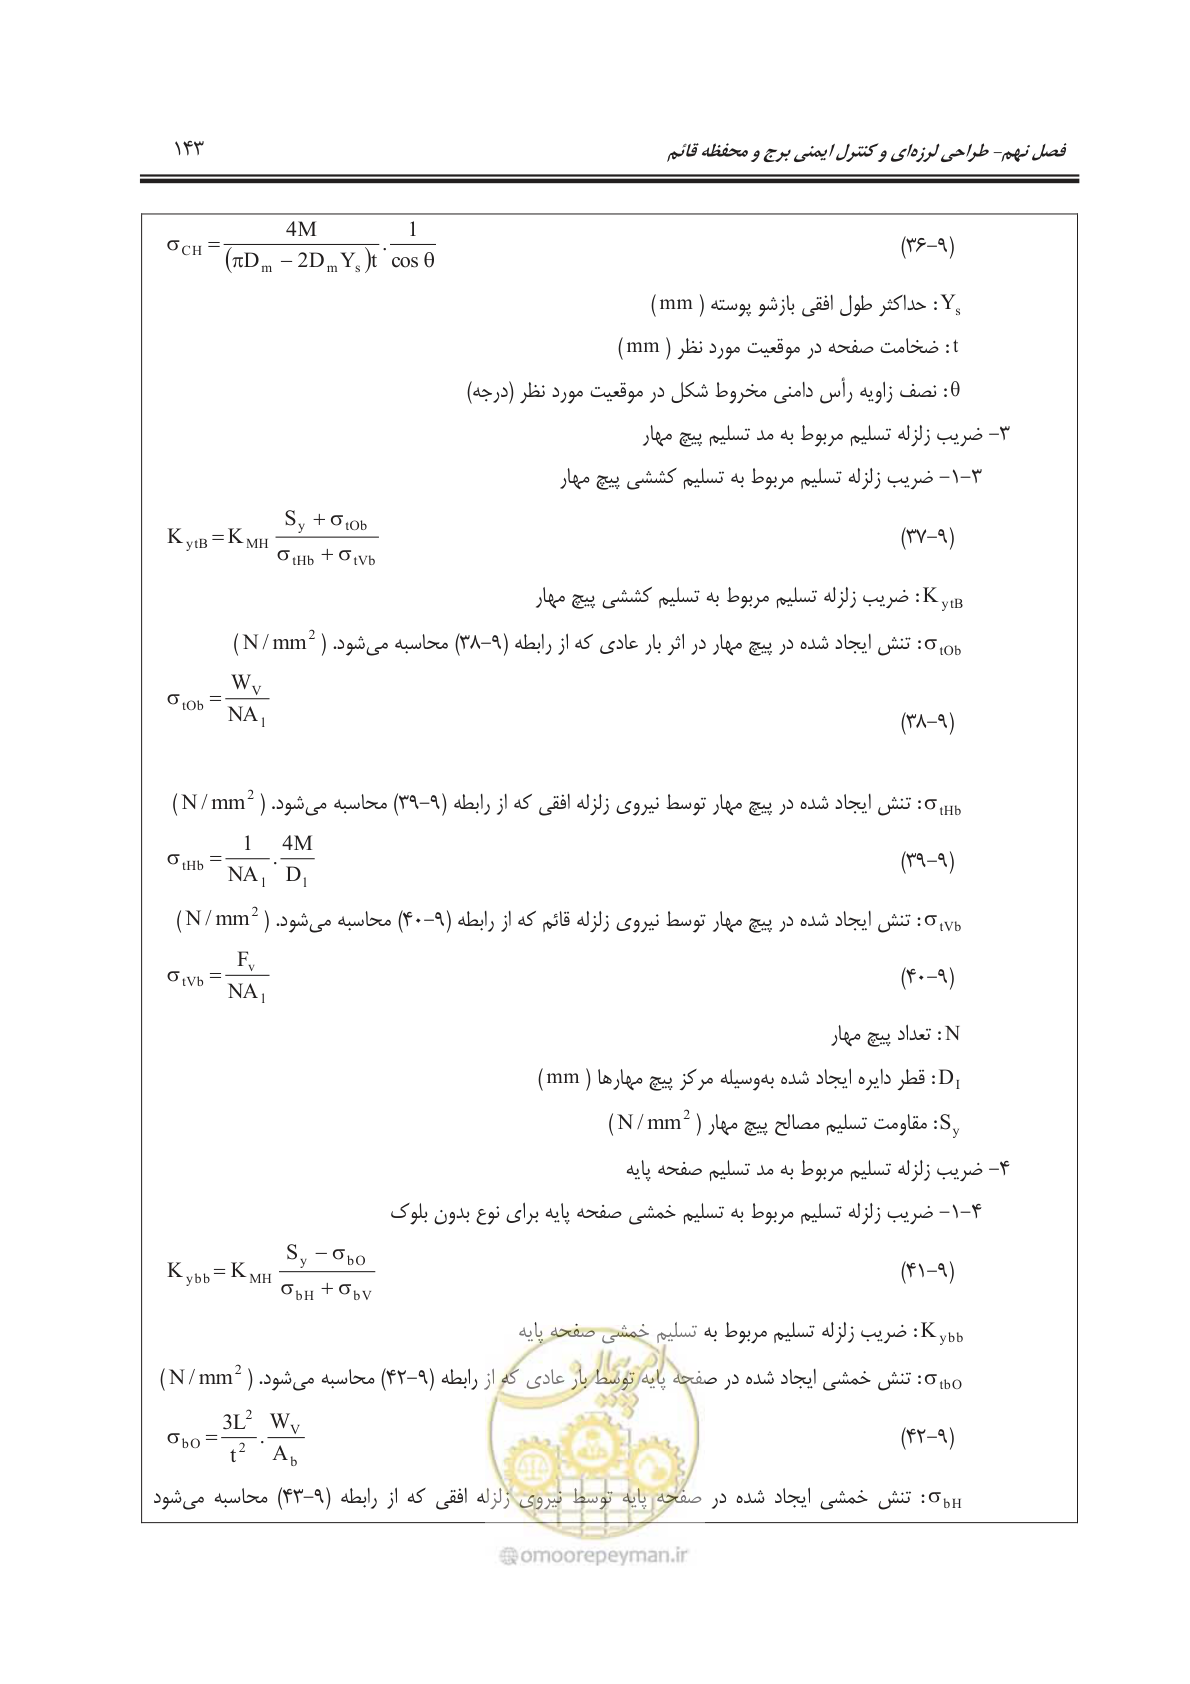 فصل نهم- طراحی لرزه‌ای و کنترل ایمنی برج و محفظه قائم ۱۴۳
σ_CH = 4M / ((πD_m − 2D_m Y_s)t) . 1 / cos θ (۳۶-۹)
Y_s: حداکثر طول افقی بازشو پوسته (mm)
t: ضخامت صفحه در موقعیت مورد نظر (mm)
θ: نصف زاویه رأس دامنی مخروط شکل در موقعیت مورد نظر (درجه)
۳- ضریب زلزله تسلیم مربوط به مد تسلیم پیچ مهار
۳-۱- ضریب زلزله تسلیم مربوط به تسلیم کششی پیچ مهار
K_ytB = K_MH (S_y + σ_tOb) / (σ_tHb + σ_tVb) (۳۷-۹)
K_ytB: ضریب زلزله تسلیم مربوط به تسلیم کششی پیچ مهار
σ_tOb: تنش ایجاد شده در پیچ مهار در اثر بار عادی که از رابطه (۹-۳۸) محاسبه می‌شود. (N/mm²)
σ_tOb = W_V / NA_1 (۳۸-۹)
σ_tHb: تنش ایجاد شده در پیچ مهار توسط نیروی زلزله افقی که از رابطه (۹-۳۹) محاسبه می‌شود. (N/mm²)
σ_tHb = 1 / NA_1 . 4M / D_1 (۳۹-۹)
σ_tVb: تنش ایجاد شده در پیچ مهار توسط نیروی زلزله قائم که از رابطه (۹-۴۰) محاسبه می‌شود. (N/mm²)
σ_tVb = F_v / NA_1 (۴۰-۹)
N: تعداد پیچ مهار
D_I: قطر دایره ایجاد شده به‌وسیله مرکز پیچ مهارها (mm)
S_y: مقاومت تسلیم مصالح پیچ مهار (N/mm²)
۴- ضریب زلزله تسلیم مربوط به مد تسلیم صفحه پایه
۴-۱- ضریب زلزله تسلیم مربوط به تسلیم خمشی صفحه پایه برای نوع بدون بلوک
K_ybb = K_MH (S_y − σ_bO) / (σ_bH + σ_bV) (۴۱-۹)
K_ybb: ضریب زلزله تسلیم مربوط به تسلیم خمشی صفحه پایه
σ_tbO: تنش خمشی ایجاد شده در صفحه پایه توسط بار عادی که از رابطه (۹-۴۲) محاسبه می‌شود. (N/mm²)
σ_bO = 3L² / t² . W_V / A_b (۴۲-۹)
σ_bH: تنش خمشی ایجاد شده در صفحه پایه توسط نیروی زلزله افقی که از رابطه (۹-۴۳) محاسبه می‌شود
امور پیمان
@omoorepeyman.ir